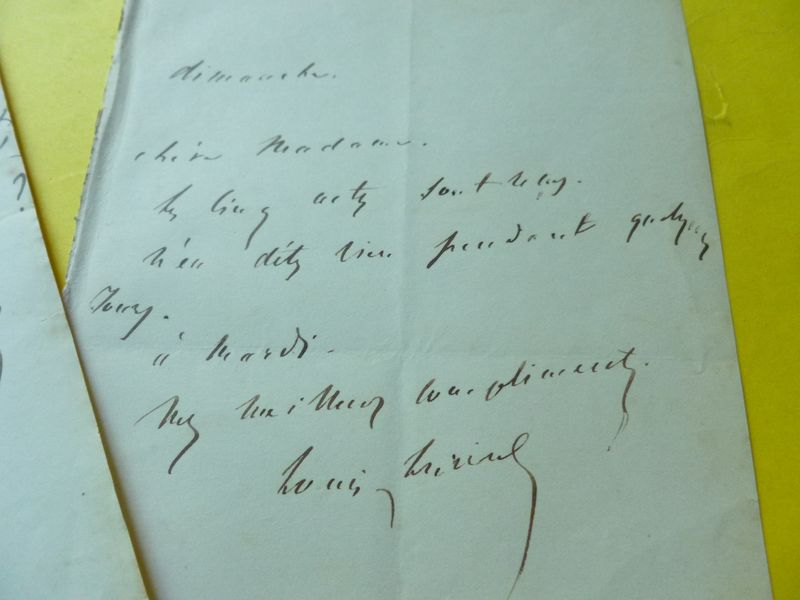 dimanche.
chère Madame.
les cinq actes sont reçus.
n'en dites rien pendant quelques
jours.
à mardi.
Mes meilleurs compliments.
Louis
?